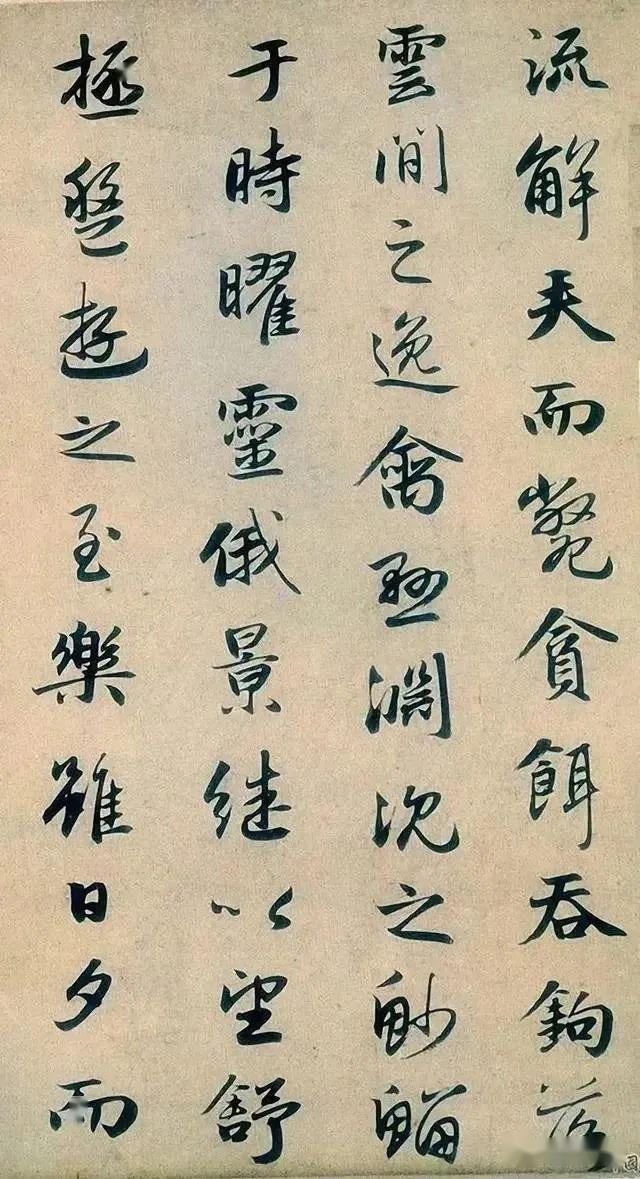 流觸矢而斃貪餌吞鉤落
雲間之逸禽懸淵沉之魦鰡
于時曜靈俄景繼以望舒
極盤遊之至樂雖日夕而